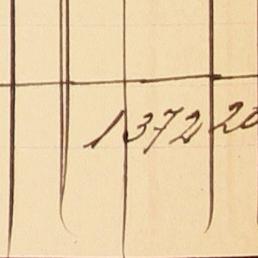 1372 20